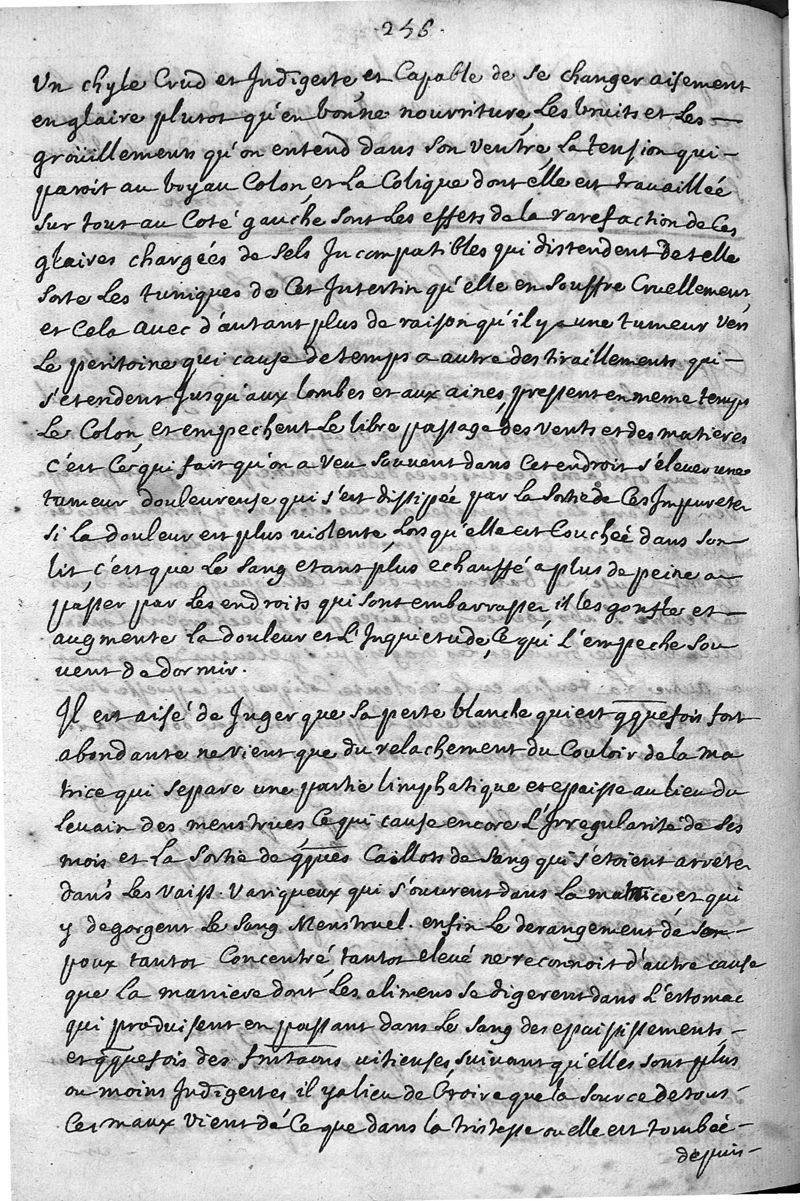 .256.
Un chyle Crud et Indigeste, et Capable de se changer aisement
en glaire plutot qu'en bonne nourriture, Les bruits et Les
groüillements qu'on entend dans son ventre, La tension qui
paroit au boyau Colon, et La Colique dont elle est travaillée
sur tout au Coté gauche sont Les effets de la rarefaction de Ces
glaires chargées de sels Incompatibles qui distendent de telle
sorte Les tuniques de Cet Intestin qu'elle en souffre Cruellement,
et Cela avec d'autant plus de raison qu'il y a une tumeur vers
Le peritoine qui cause de temps a autre des tiraillements qui
s'etendent Jusqu'aux lombes et aux aines, pressent en meme temps
Le Colon, et empechent Le libre passage des vents et des matieres
c'est Ce qui fait qu'on a veu souvent dans Cet endroit s'elever une
tumeur douleureuse qui s'est dissipée par La sortie de Ces Impuretez
si la douleur est plus violente, Lorsqu'elle est Couchée dans son
lit, c'est que Le sang etant plus echauffé a plus de peine a
passer par Les endroits qui sont embarrassez il les gonfle et
augmente La douleur et L'Inquietude, Ce qui L'empeche sou
vent de dormir.
Il est aisé de Juger que sa perte blanche qui est qquefois fort
abondante ne vient que du relachement du Couloir de la ma
trice qui separe une partie limphatique et epaisse au lieu du
levain des menstrues Ce qui cause encore L'Irregularité de ses
mois et La sortie de qques Caillots de sang qui s'etoient arretez
dans Les vaiss. variqueux qui s'ouvrent dans La matrice et qui
y degorgent Le sang Menstruel. enfin Le derangement de son
poux tantot Concentré, tantot elevé ne reconnoit d'autre cause
que La maniere dont Les alimens se digerent dans L'estomac
qui produisent en passant dans Le sang des epaississements
et qquefois des vitieuses, suivant qu'elles sont plus
ou moins Indigestes il y a lieu de Croire que la source de tous
Ces maux vient de Ce que dans la tristesse ou elle est tombée
depuis